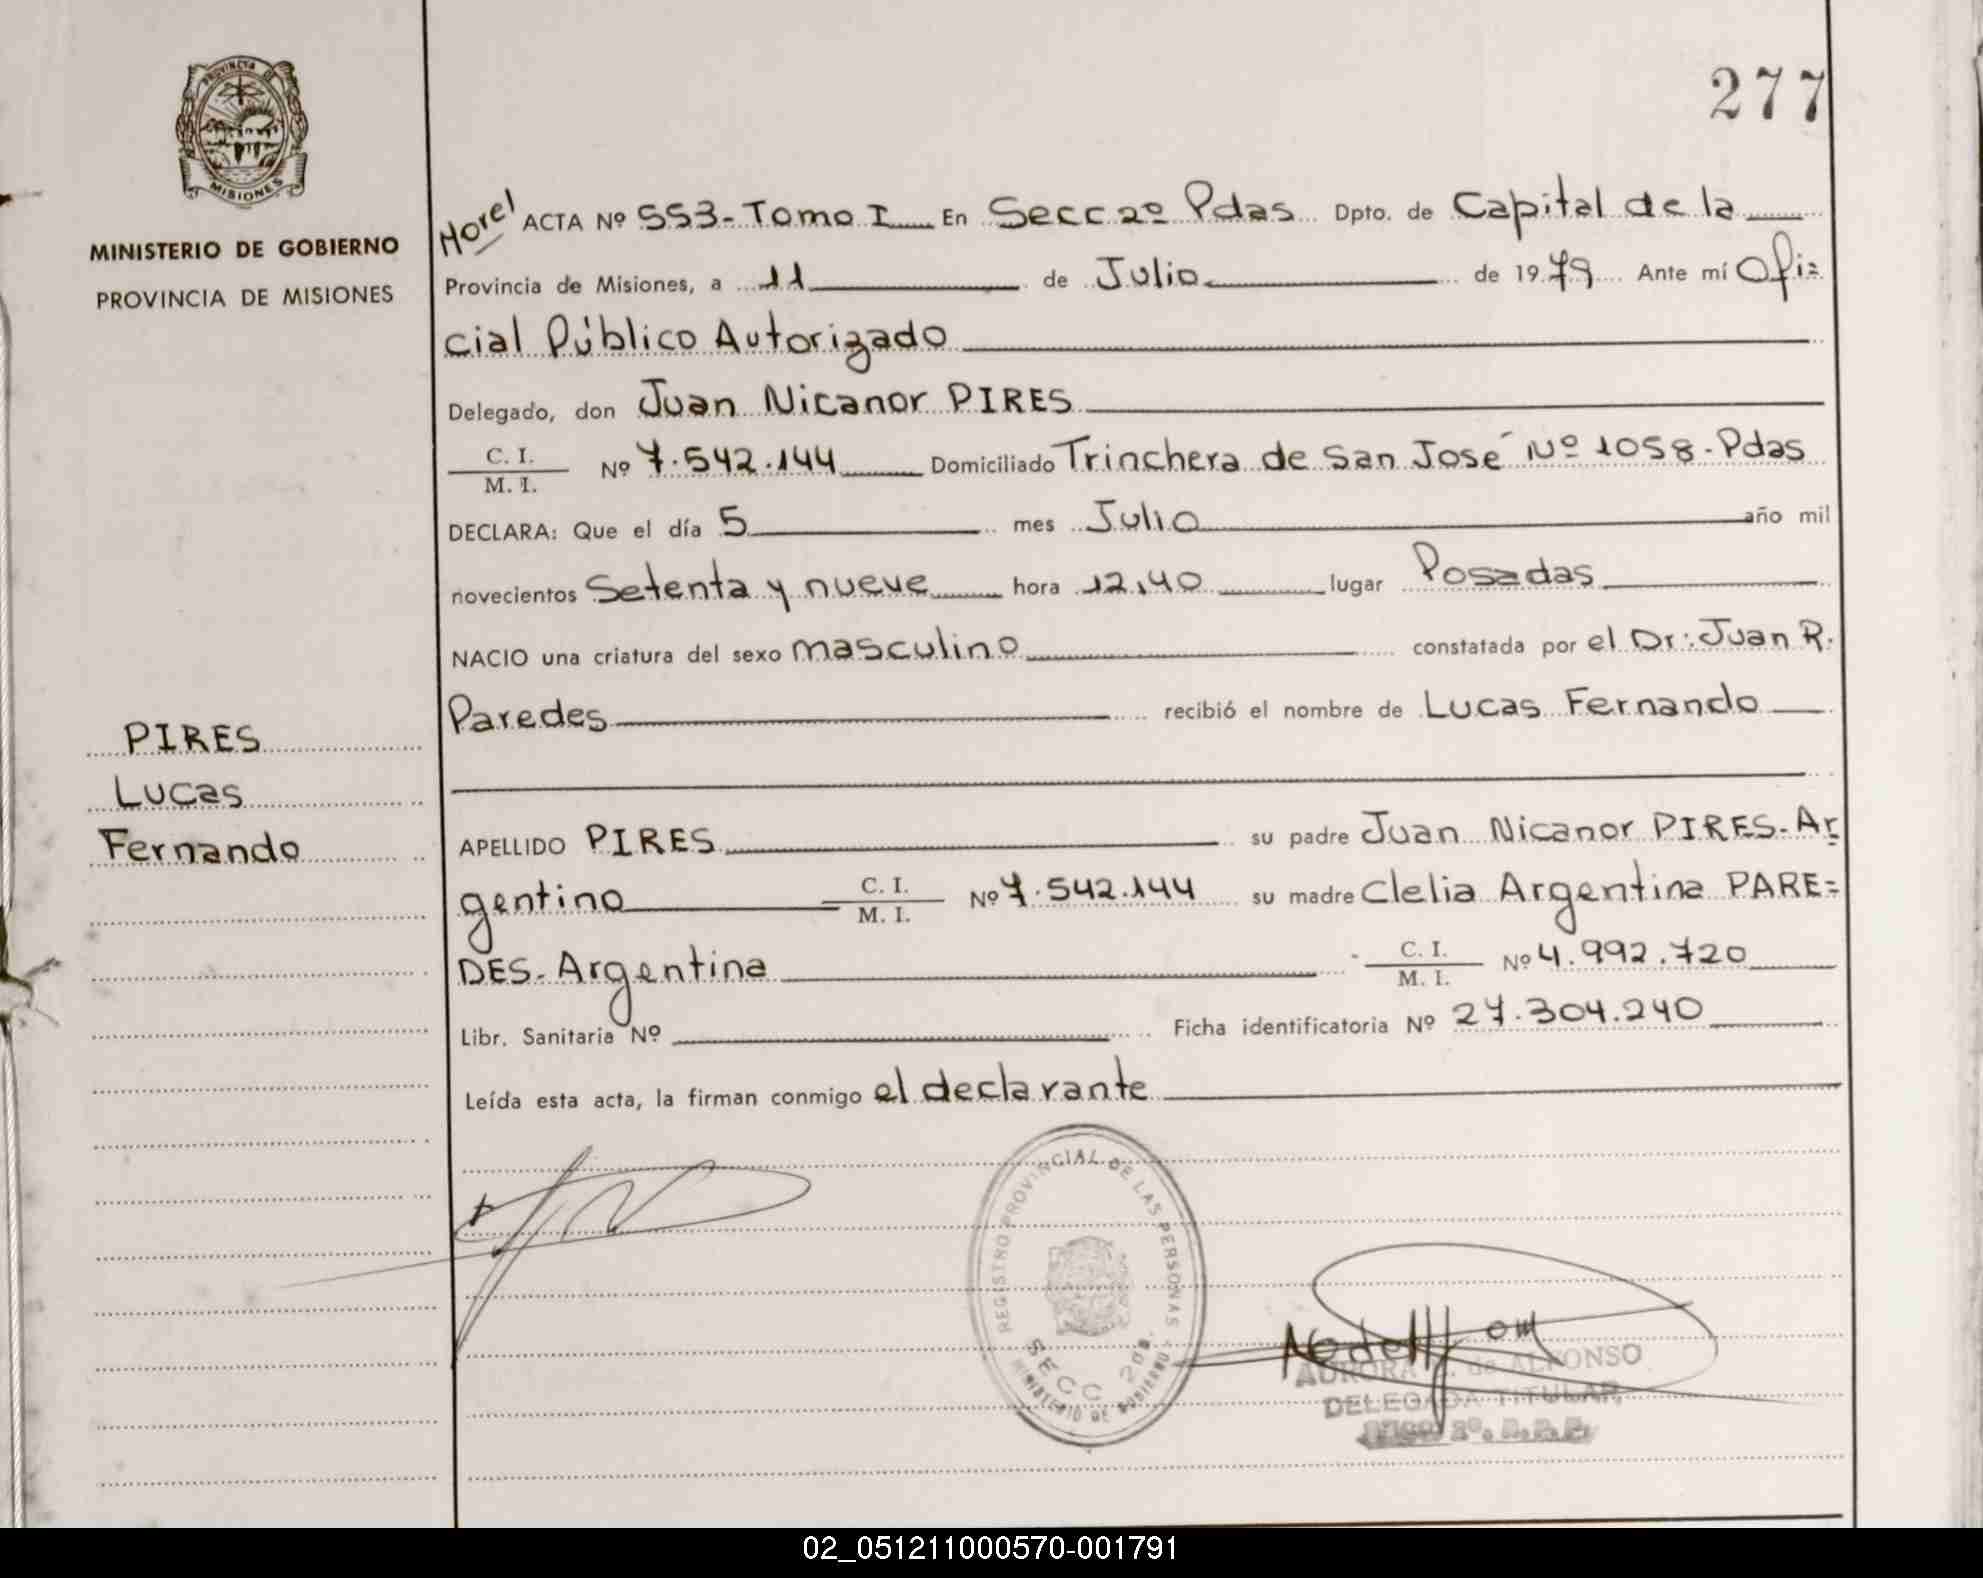 277
PROVINCIA DE
MISIONES
MINISTERIO DE GOBIERNO
PROVINCIA DE MISIONES
ACTA Nº 553-Tomo I En Secc 2º Pdas Dpto. de Capital de la
Provincia de Misiones, a 11 de Julio de 1979 Ante mí Ofi=
cial Público Autorizado
Delegado, don Juan Nicanor PIRES
C. I.
M. I. Nº 7.542.144 Domiciliado Trinchera de San José Nº 1058-Pdas
DECLARA: Que el día 5 mes Julio año mil
novecientos Setenta y nueve hora 12,40 lugar Posadas
NACIO una criatura del sexo masculino constatada por el Dr: Juan R.
Paredes recibió el nombre de Lucas Fernando
PIRES
Lucas
Fernando
APELLIDO PIRES su padre Juan Nicanor PIRES-Ar
gentino C. I. M. I. Nº 7.542.144 su madre Clelia Argentina PARE=
DES-Argentina C. I. M. I. Nº 4.992.720
Libr. Sanitaria Nº Ficha identificatoria Nº 27.304.240
Leída esta acta, la firman conmigo el declarante
REGISTRO PROVINCIAL DE LAS PERSONAS
SECC 2da.
MINISTERIO DE GOBIERNO
AURORA de ALFONSO
DELEGADA TITULAR
02_051211000570-001791